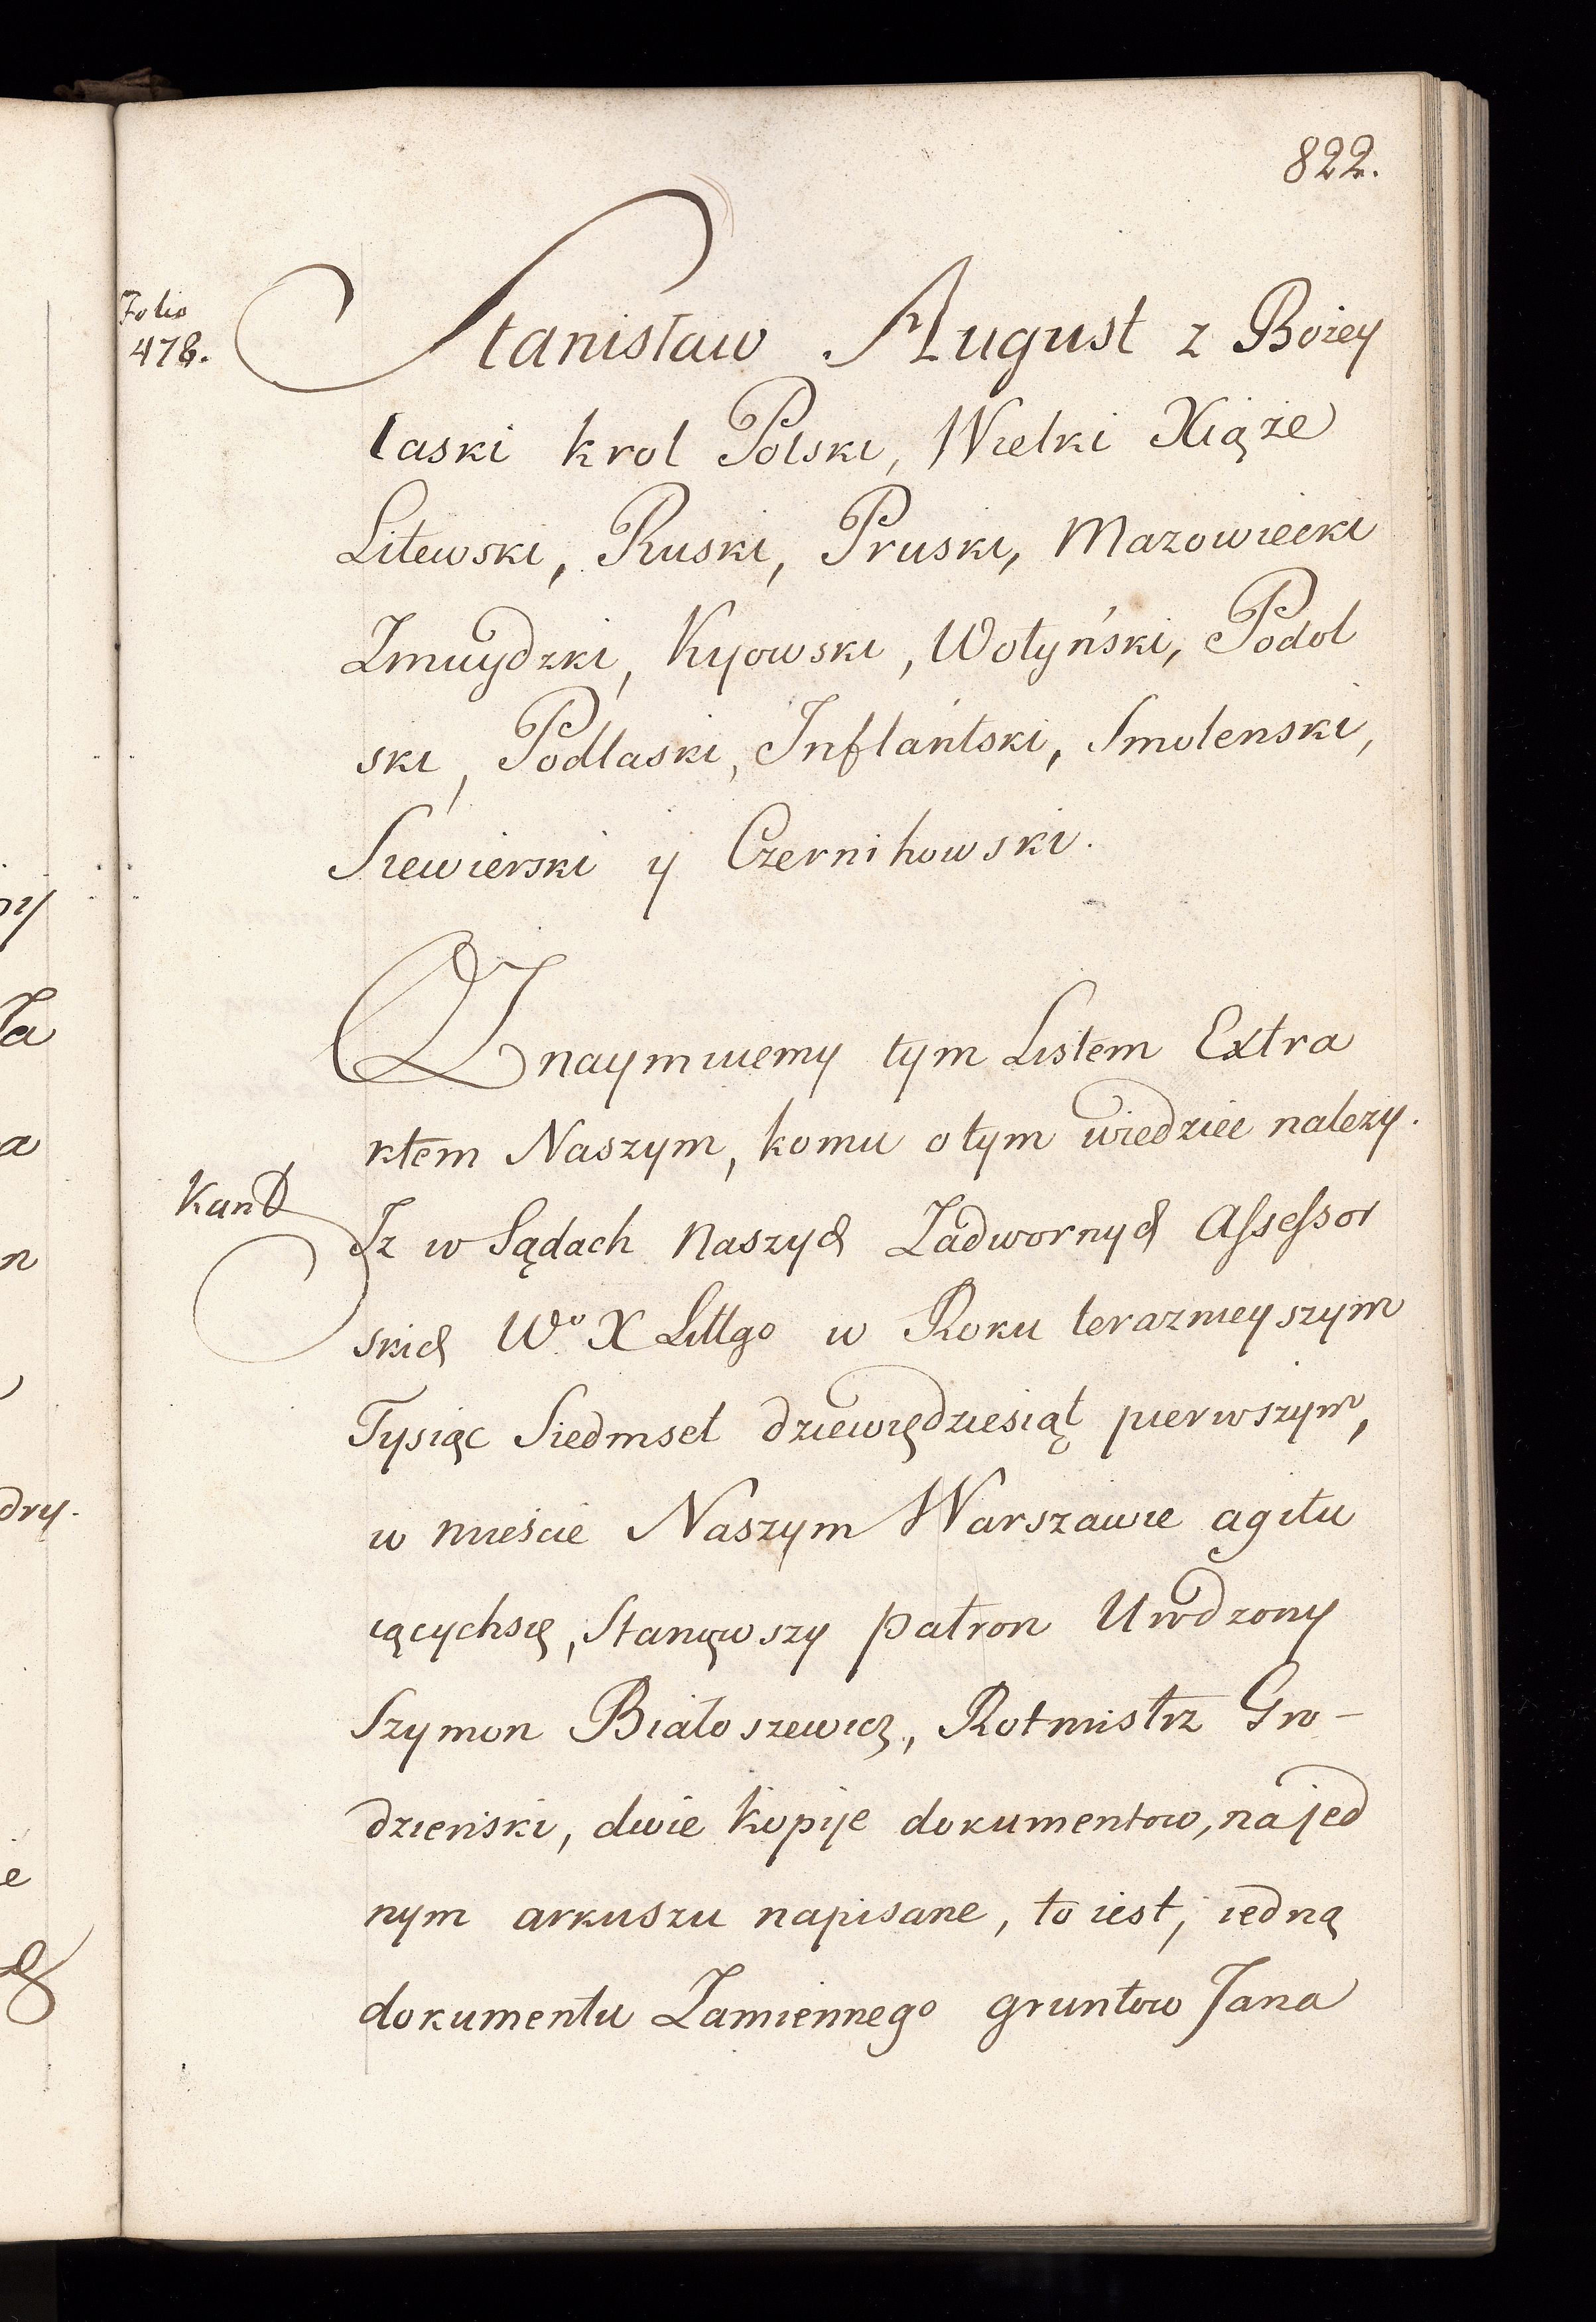 822.
Folio
478.
Stanisław August z Bożey
łaski krol Polski, Wielki Xiąże
Litewski, Ruski, Pruski, Mazowiecki
Zmuydzki, Kyowski, Wołyński, Podol
ski, Podlaski, Inflańtski, Smolenski,
Siewierski y Czernihowski.
Oznaymuiemy tym Listem Extra
ktem Naszym, komu o tym wiedzieć nalezy.
Kand
Iz w Sądach Naszych Zadwornych Assessor
skich Wo X Littgo w Roku teraznieyszym
Tysiąc Siedmset dziewiędziesiąt pierwszym,
w mieście Naszym Warszawie agitu
iącychsię, Stanąwszy Patron Urodzony
Szymon Białoszewicz, Rotmistrz Gro-
dzieński, dwie kopije dokumentow, na jed
nym arkuszu napisane, to iest, iedną
dokumentu Zamiennego gruntow Jana